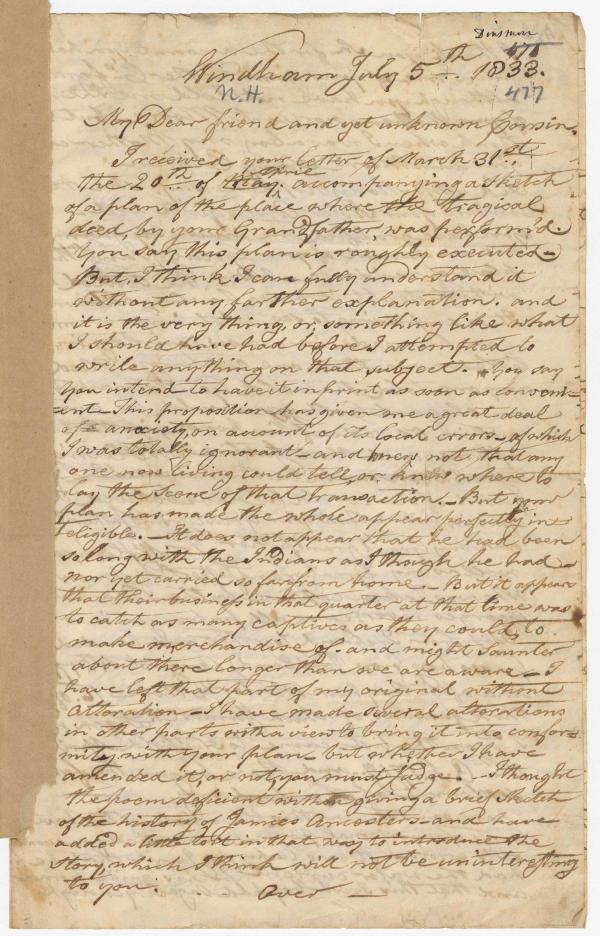 Dinsmoor
475
Windham July 5th 1833.
N.H. 477
My Dear friend and yet unknown Cousin.
I received your letter of March 31st
the 20th of may. Aprie accompanying a sketch
of a plan of the place where the tragical
deed, by your Grandfather, was perform'd.
You say this plan is roughly executed—
But, I think I can fully understand it
without any farther explanation. and
it is the very thing, or, something like what
I should have had before I attempted to
write anything on that subject. You say
you intend to have it in print as soon as conveni=
=ent— This proposition has given me a great deal
of= anxiety, on account of its local errors— of which
I was totally ignorant— and knew not that any
one now living could tell, or, knew where to
lay the scene of that transaction.— But your
plan has made the whole appear perfectly in=
teligible.— It does not appear that he had been
so long with the Indians as I though he had—
nor yet carried so far from home.— But it appears
that their business in that quarter at that time was
to catch as many captives as they could, to
make merchandise of. and might saunter
about there longer than we are aware— I
have left that part of my original without
alteration— I have made several alterations
in other parts with a view to bring it into confor=
mity, with your plan— but whether I have
amended it, or not, you must judge.— I thought
the poem deficient without giving a brief sketch
of the history of James Ancesters— and have
added a little to it in that way to introduce the
story, which I think will not be uninteresting
to you. Over —